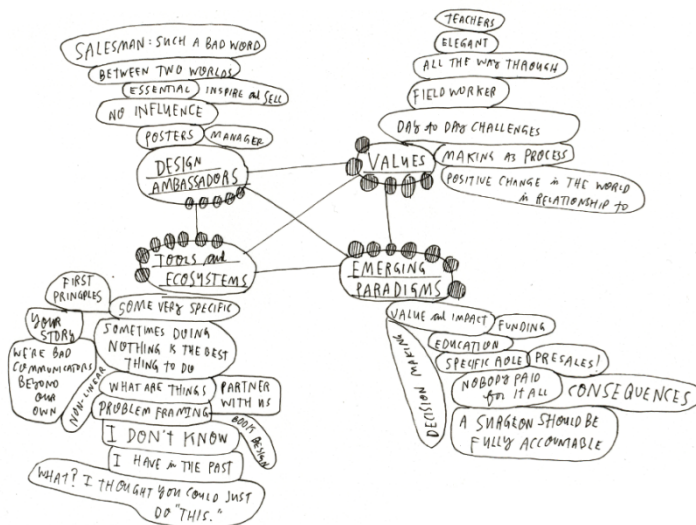 SALESMAN: SUCH A BAD WORD
BETWEEN TWO WORLDS
ESSENTIAL
INSPIRE and SELL
NO INFLUENCE
POSTERS
MANAGER
DESIGN
AMBASSADORS
TEACHERS
ELEGANT
ALL THE WAY THROUGH
FIELD WORKER
DAY to DAY CHALLENGES
VALUES
MAKING AS PROCESS
POSITIVE CHANGE in THE WORLD
in RELATIONSHIP to
TOOLS and
ECOSYSTEMS
FIRST
PRINCIPLES
SOME VERY SPECIFIC
YOUR
STORY
SOMETIMES DOING
NOTHING IS THE BEST
THING TO DO
WE'RE BAD
COMMUNICATORS
BEYOND
OUR
OWN
NON-LINEAR
WHAT ARE THINGS
PARTNER
WITH US
PROBLEM FRAMING
BOOK DESIGN
I DON'T KNOW
I HAVE in THE PAST
WHAT? I THOUGHT YOU COULD JUST
DO "THIS."
EMERGING
PARADIGMS
VALUE and IMPACT
FUNDING
DECISION MAKING
EDUCATION
SPECIFIC ROLE
PRESALES!
NOBODY PAID
for IT ALL
CONSEQUENCES
A SURGEON SHOULD BE
FULLY ACCOUNTABLE